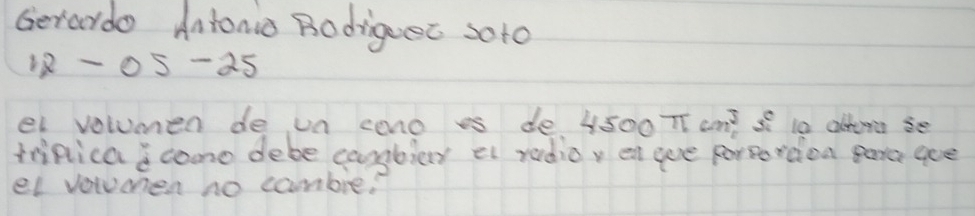 Gerardo Antonio Rodriguez soto
12 - 05 - 25
el volumen de un cono es de 4500 π cm³ si la altura se
triplica ¿como debe cambiar el radio y en que porporcion para que
el volumen no cambie?